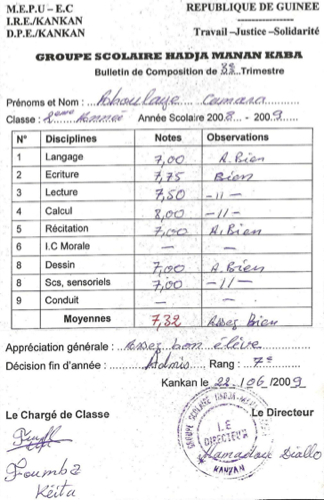 M.E.P.U - E.C REPUBLIQUE DE GUINEE
I.R.E./KANKAN
D.P.E./KANKAN Travail –Justice –Solidarité
GROUPE SCOLAIRE HADJA MANAN KABA
Bulletin de Composition de 3è Trimestre
Prénoms et Nom : Aboulaye Camara
Classe : 2ème Année Année Scolaire 2008 - 2009
N° Disciplines Notes Observations
1 Langage 7,00 A. Bien
2 Ecriture 7,75 Bien
3 Lecture 7,50 –//–
4 Calcul 8,00 –//–
5 Récitation 7,00 A. Bien
6 I.C Morale – –
8 Dessin 7,00 A. Bien
8 Scs, sensoriels 7,00 –//–
9 Conduit – –
Moyennes 7,32 Assez Bien
Appréciation générale : Assez bon élève
Décision fin d'année : Admis Rang : 7è
Kankan le 22/06/2009
Le Chargé de Classe Le Directeur
GROUPE SCOLAIRE HADJA
LE DIRECTEUR
KANKAN
Mamadou Diallo
Foumba
Kéita